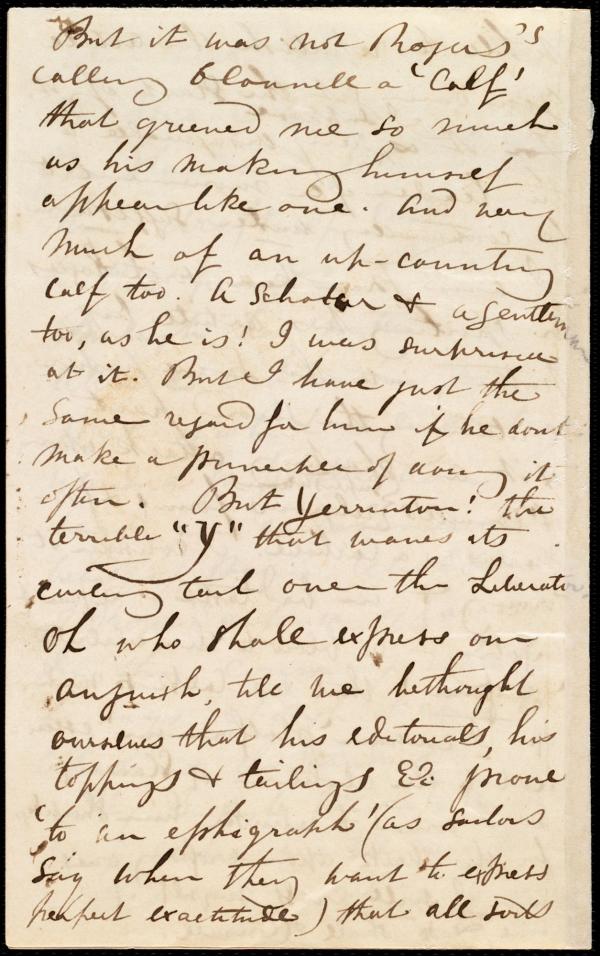 But it was not Rogers's
calling O'Connell a 'Calf'
that grieved me so much
as his making himself
appear like one. And very
much of an up-country
calf too. A scholar & a gentleman
too, as he is! I was surprised
at it. But I have just the
same regard for him if he dont
make a practice of doing it
often. But Yerrinton! the
terrible "Y" that waves its
curling tail over the Liberator
Oh who shall express our
anguish, till we bethought
ourselves that his editorials, his
toppings & tailings &c prove
'to an ephigraph' (as sailors
say when they want to express
perfect exactitude) that all sorts